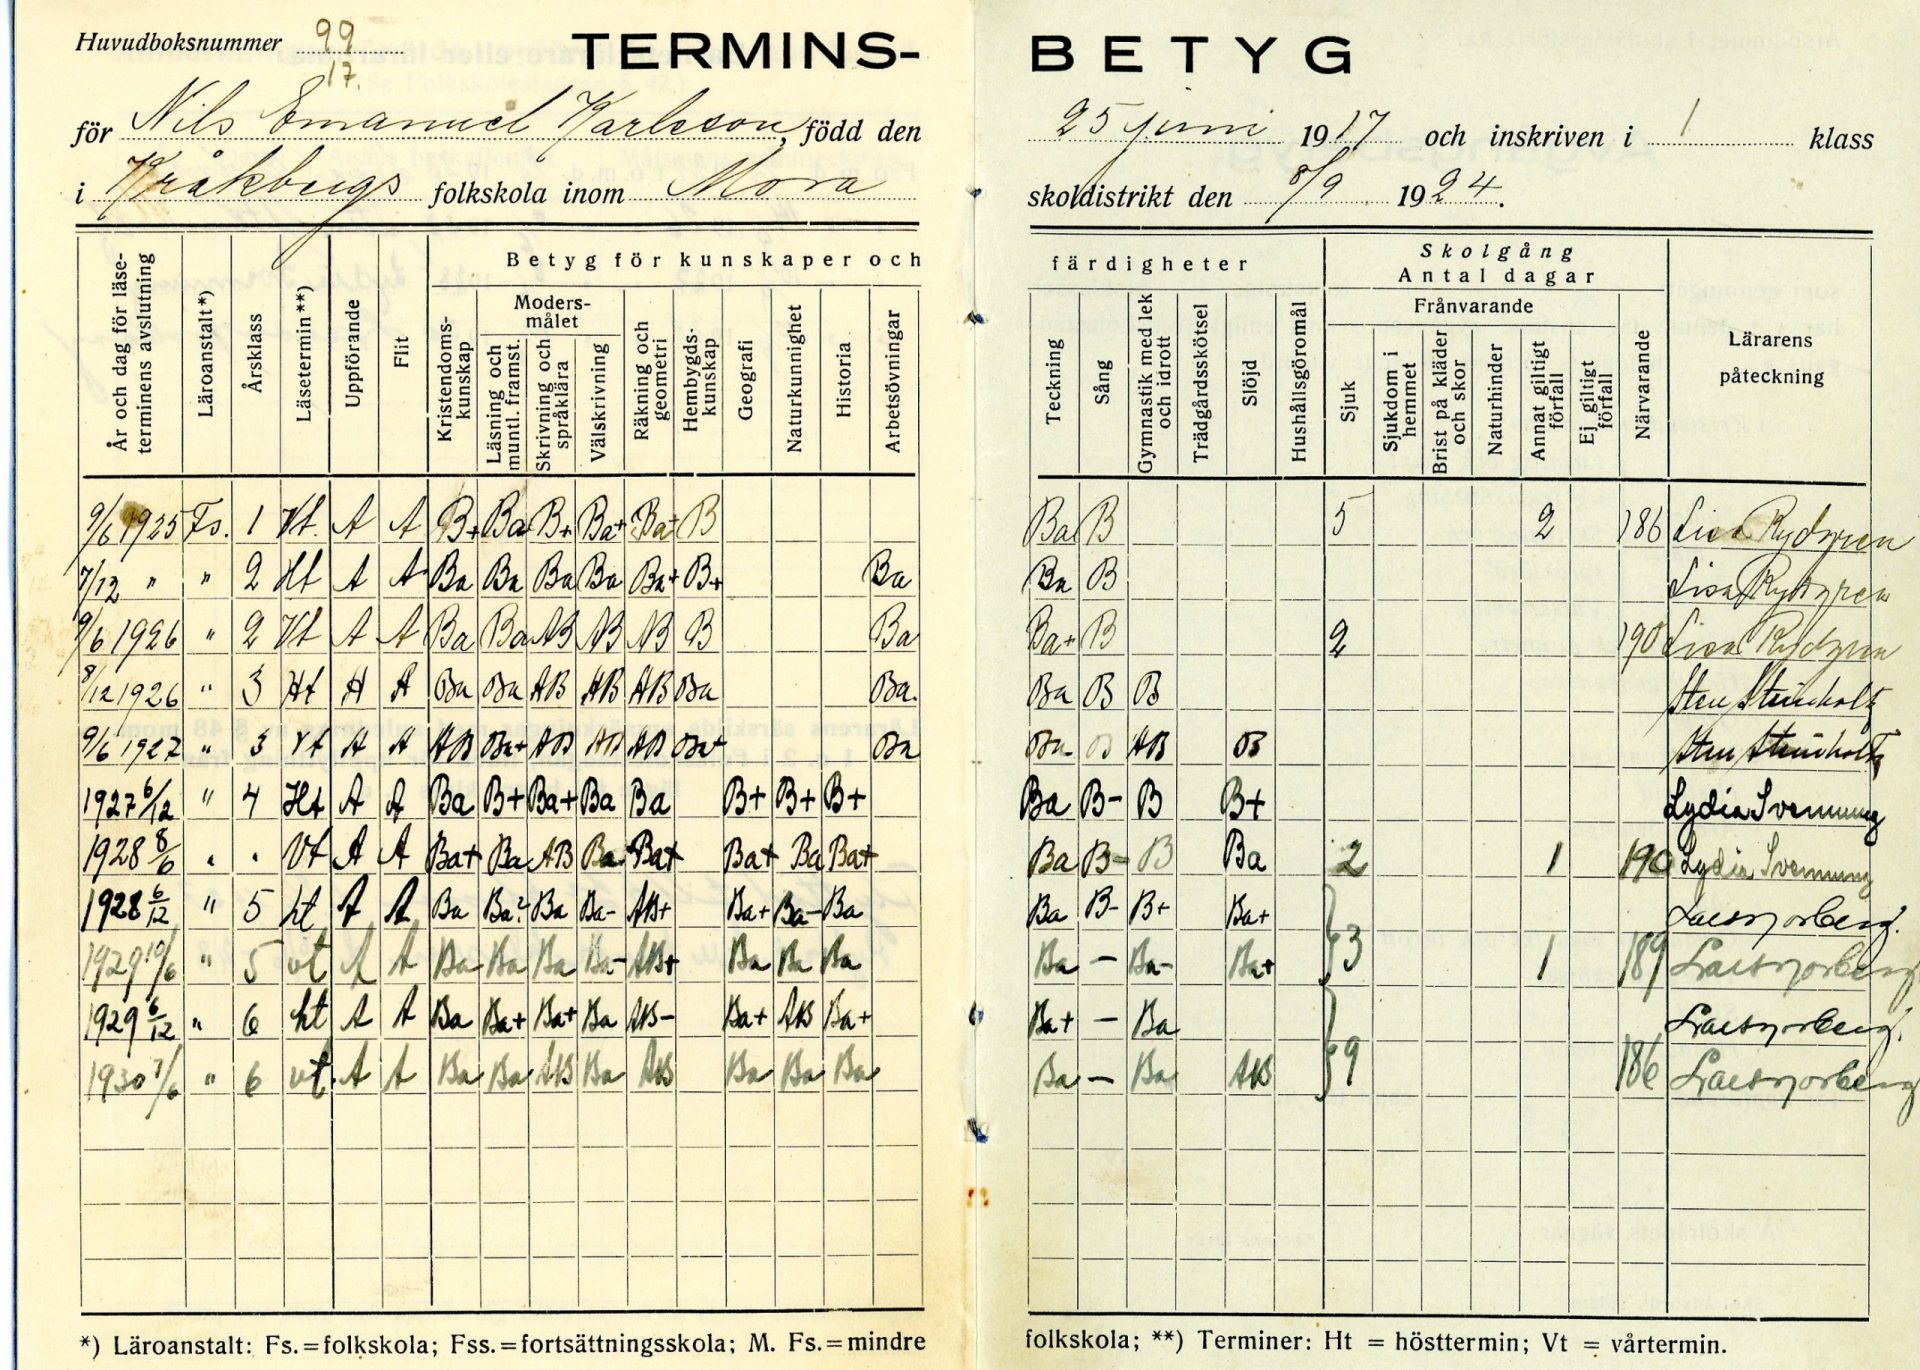 Huvudboksnummer 99/17. TERMINS- BETYG
för Nils Emanuel Karlsson, född den 25 juni 1917 och inskriven i 1 klass
i Kråkbergs folkskola inom Mora skoldistrikt den 8/9 1924.
Betyg för kunskaper och färdigheter
Skolgång
Antal dagar
Frånvarande
År och dag för läseterminens avslutning
Läroanstalt*)
Årsklass
Läsetermin**)
Uppförande
Flit
Kristendomskunskap
Modersmålet
Läsning och muntl. framst.
Skrivning och språklära
Välskrivning
Räkning och geometri
Hembygdskunskap
Geografi
Naturkunnighet
Historia
Arbetsövningar
Teckning
Sång
Gymnastik med lek och idrott
Trädgårdsskötsel
Slöjd
Hushållsgöromål
Sjuk
Sjukdom i hemmet
Brist på kläder och skor
Naturhinder
Annat giltigt förfall
Ej giltigt förfall
Närvarande
Lärarens påteckning
9/6 1925 Fs. 1 Vt. A A B+ Ba B+ Ba+ Ba+ B Ba B 5 2 186 Lisa Rydgren
7/12 " " 2 Ht A A Ba Ba Ba Ba Ba+ B+ Ba Ba B Lisa Rydgren
9/6 1926 " 2 Vt A A Ba Ba AB AB AB B Ba Ba+ B 2 190 Lisa Rydgren
8/12 1926 " 3 Ht A A Ba Ba AB AB AB Ba Ba. Ba B B Sten Steinholtz
9/6 1927 " 3 Vt A A AB Ba+ AB AB AB Ba+ Ba Ba B AB B Sten Steinholtz
1927 6/12 " 4 Ht A A Ba B+ Ba+ Ba Ba B+ B+ B+ Ba B- B B+ Lydia Svennung
1928 8/6 " " Vt A A Ba+ Ba AB Ba Ba+ Ba+ Ba Ba+ Ba B- B Ba 2 1 190 Lydia Svennung
1928 6/12 " 5 ht A A Ba Ba Ba Ba- AB+ Ba+ Ba- Ba Ba B- B+ Ba+
1929 10/6 " 5 vt A A Ba Ba Ba Ba- AB+ Ba Ba Ba Ba - Ba- Ba+ 3 1 189
1929 6/12 " 6 ht A A Ba Ba+ Ba+ Ba AB- Ba+ AB Ba+ Ba+ - Ba
1930 7/6 " 6 vt. A A Ba Ba AB Ba AB Ba Ba Ba Ba - Ba AB 9 186
*) Läroanstalt: Fs.=folkskola; Fss.=fortsättningsskola; M. Fs.=mindre folkskola; **) Terminer: Ht = hösttermin; Vt = vårtermin.